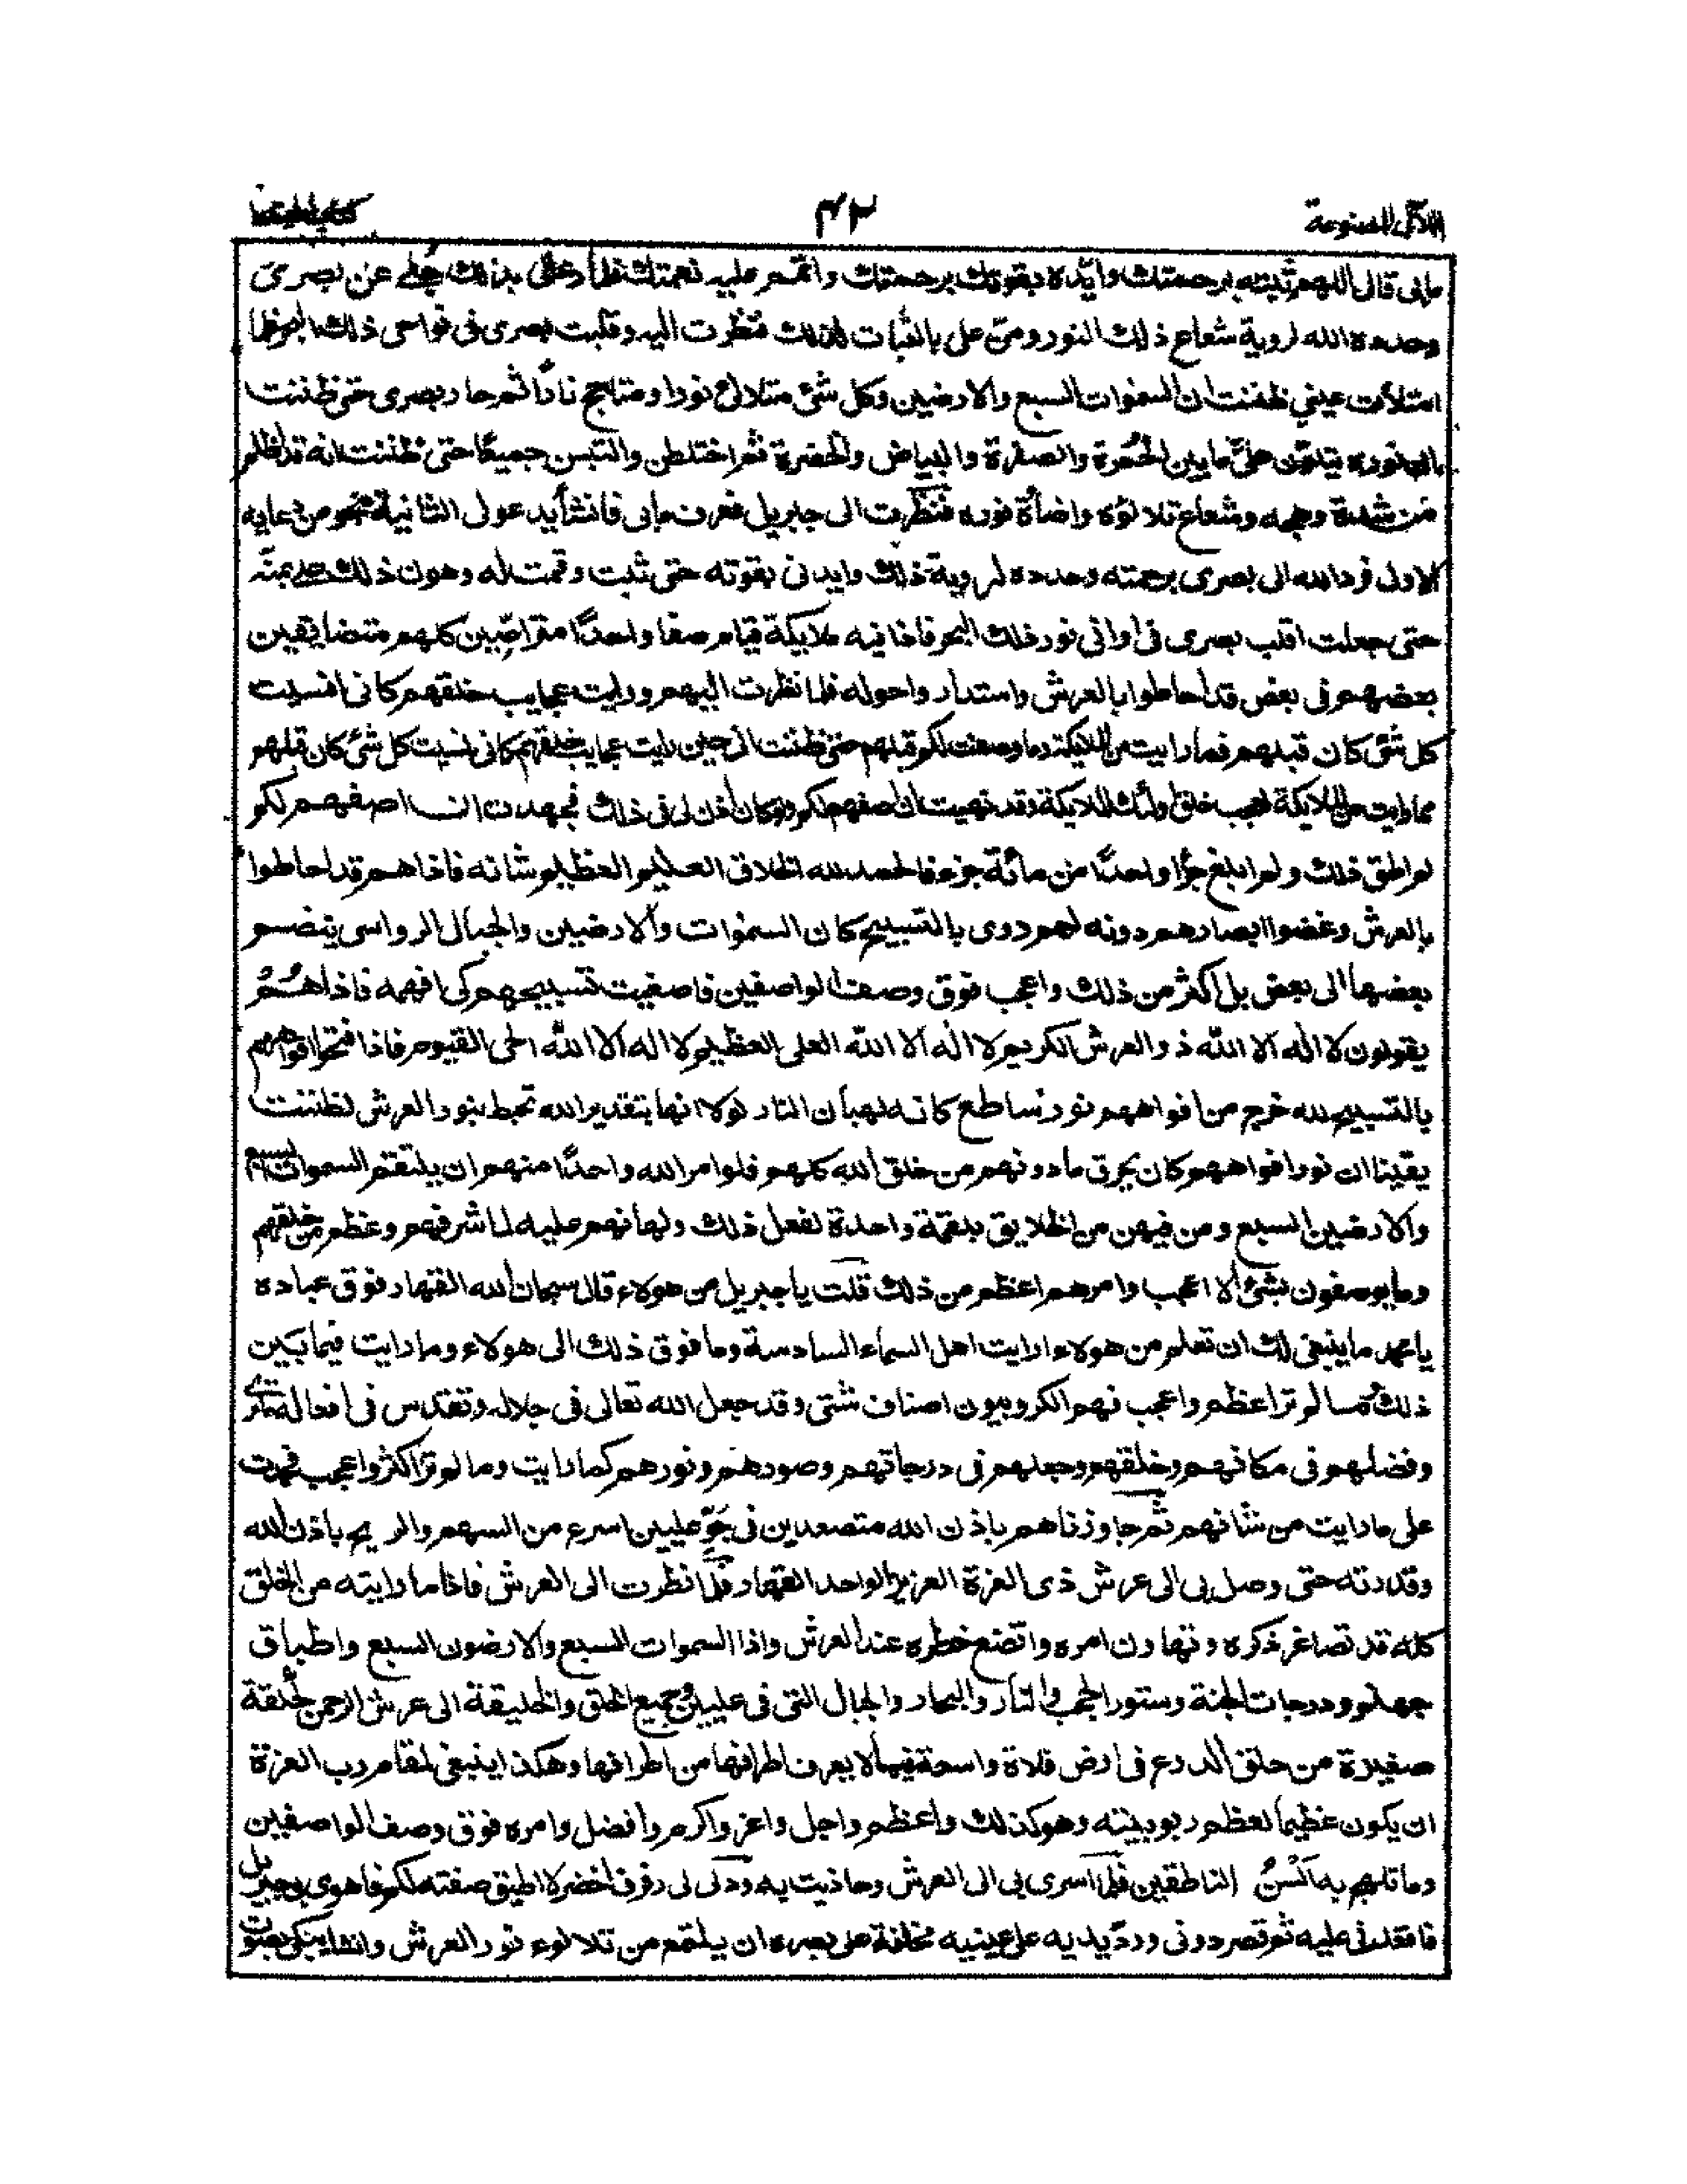 اللآلى المصنوعة ٤٢
مابى قال اللهم ثبته برحمتك وايده بقوتك برحمتك واتمم عليه نعمتك فلما دعالى بذلك جلى عن بصرى
وحدده الله لروية شعاع ذلك النور ومن على بالثبات لذلك فنظرت اليه وقلبت بصرى فى نواحى ذلك البحر فلما
امتلأت عينى ظننت ان السموات السبع والارضين وكل شئ متلالئ نورا ومتاجج نارا ثم حار بصرى حتى ظننت
ان نوره يتلون على ما بين الحمرة والصفرة والبياض والخضرة ثم اختلطن والتبسن جميعا حتى ظننت انه قد اظلم
من شدة وهجه وشعاع تلالؤه واضاة نوره فنظرت الى جبريل فعرف مابى فانشأ يدعولى الثانية بنحو من دعايه
الاول فرد الله الى بصرى برحمته وحدده لروية ذلك وايدنى بقوته حتى ثبت وقمت له وهون ذلك على بمنّه
حتى جعلت اقلب بصرى فى اوانى نور ذلك البحر فاذا فيه ملايكة قيام صفا واحدًا متراصّين كلهم متضايقين
بعضهم فى بعض قد احاطوا بالعرش واستداروا حوله فلما نظرت اليهم ورايت عجايب خلقهم كانى انسيت
كل شئ كان قبلهم فما رايت من الملايكة وما وصفت لكم قبلهم حتى ظننت انى حين رايت عجايب خلقهم كانى نسيت كل شئ كان قبلهم
مما رايت من الملايكة لعجب خلق اولئك الملايكة وقد نهيت ان اصفهم لكم ولو كان اذن لى فى ذلك فجهدت ان اصفهم لكم
لم اطق ذلك ولم ابلغ جزأ واحدًا من مائة جزء فالحمد لله الخلاق العليم العظيم شانه فاذا هم قد احاطوا
بالعرش وغضوا ابصارهم دونه لهم دوى بالتسبيح كان السموات والارضين والجبال الرواسى ينضم
بعضها الى بعض بل اكثر من ذلك واعجب فوق وصف الواصفين فاصغيت لتسبيحهم كى افهمه فاذا هُمُ
يقولون لا اله الا الله ذو العرش الكريم لا اله الا الله العلى العظيم لا اله الا الله الحى القيوم فاذا فتحوا افواههم
بالتسبيح لله خرج من افواههم نور ساطع كانه لهبان النار لولا انها بتقدير الله تحيط بنور العرش لظننت
يقينا ان نور افواههم كان يحرق ما دونهم من خلق الله كلهم فلو امر الله واحدًا منهم ان يلتقم السموات السبع
والارضين السبع ومن فيهن من الخلايق بلقمة واحدة لفعل ذلك ولهانهم عليه لما شرفهم وعظم من خلقهم
وما يوصفون بشئ الا اعجب وامرهم اعظم من ذلك قلت يا جبريل من هولاء قال سبحان الله القهار فوق عباده
يا محمد ما ينبغى لك ان تعلم من هولاء ارايت اهل السماء السادسة وما فوق ذلك الى هولاء وما رايت فيما بين
ذلك وما لم تر اعظم واعجب فهم الكروبيون اصناف شتى وقد جعل الله تعالى فى جلاله وتقدس فى افعاله ما ترى
وفضلهم فى مكانهم وخلقهم وجعلهم فى درجاتهم وصورهم ونورهم كما رايت وما لم تر اكثر واعجب فحمدت
على ما رايت من شانهم ثم جاوزناهم باذن الله متصعدين فى جوّ عليين اسرع من السهم والريح باذن الله
وقدرته حتى وصل بى الى عرش ذى العزة العزيز الواحد القهار فلما نظرت الى العرش فاذا ما رايته من الخلق
كله قد تصاغر ذكره وتهاون امره واتضع خطره عند العرش واذا السموات السبع والارضون السبع واطباق
جهنم ودرجات الجنة وستور الحجب والنار والبحار والجبال التى فى عليين وجميع الخلق والخليقة الى عرش الرحمن كحلقة
صغيرة من حلق الدرع فى ارض فلاة واسعة فيما لا يعرف اطرافها من اطرافها وهكذا ينبغى لمقام رب العزة
ان يكون عظيما لعظم ربوبيته وهو كذلك واعظم واجل واعز واكرم وافضل وامره فوق وصف الواصفين
وما تلهج به السن الناطقين فلما اسرى بى الى العرش وحاذيت به ودلى لى رفرف اخضر لا اطيق صفته لكم فاهوى بى جبريل
فاقعدنى عليه ثم قصر دونى وردّ يديه على عينيه مخافة على بصره ان يلتمع من تلالوء نور العرش وانشا يبكى بصوت